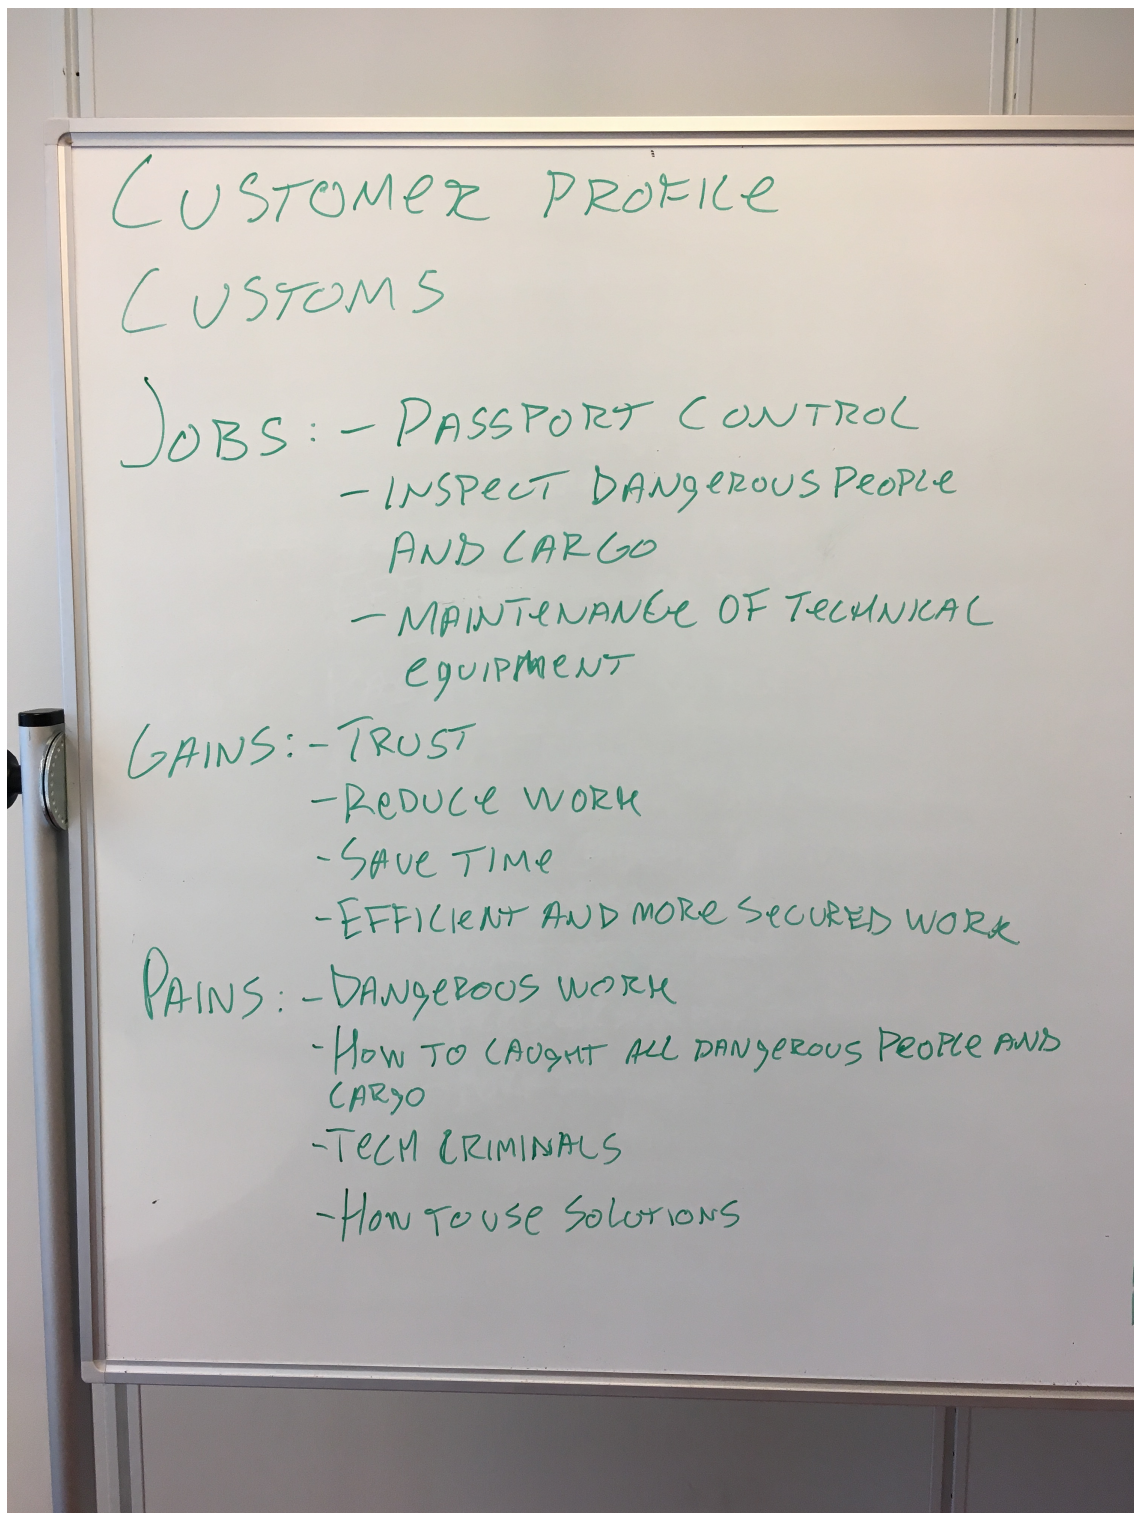 CUSTOMER PROFILE
CUSTOMS
JOBS: - PASSPORT CONTROL
- INSPECT DANGEROUS PEOPLE
AND CARGO
- MAINTENANCE OF TECHNICAL
EQUIPMENT
GAINS: - TRUST
- REDUCE WORK
- SAVE TIME
- EFFICIENT AND MORE SECURED WORK
PAINS: - DANGEROUS WORK
- HOW TO CAUGHT ALL DANGEROUS PEOPLE AND
CARGO
- TECH CRIMINALS
- HOW TO USE SOLUTIONS